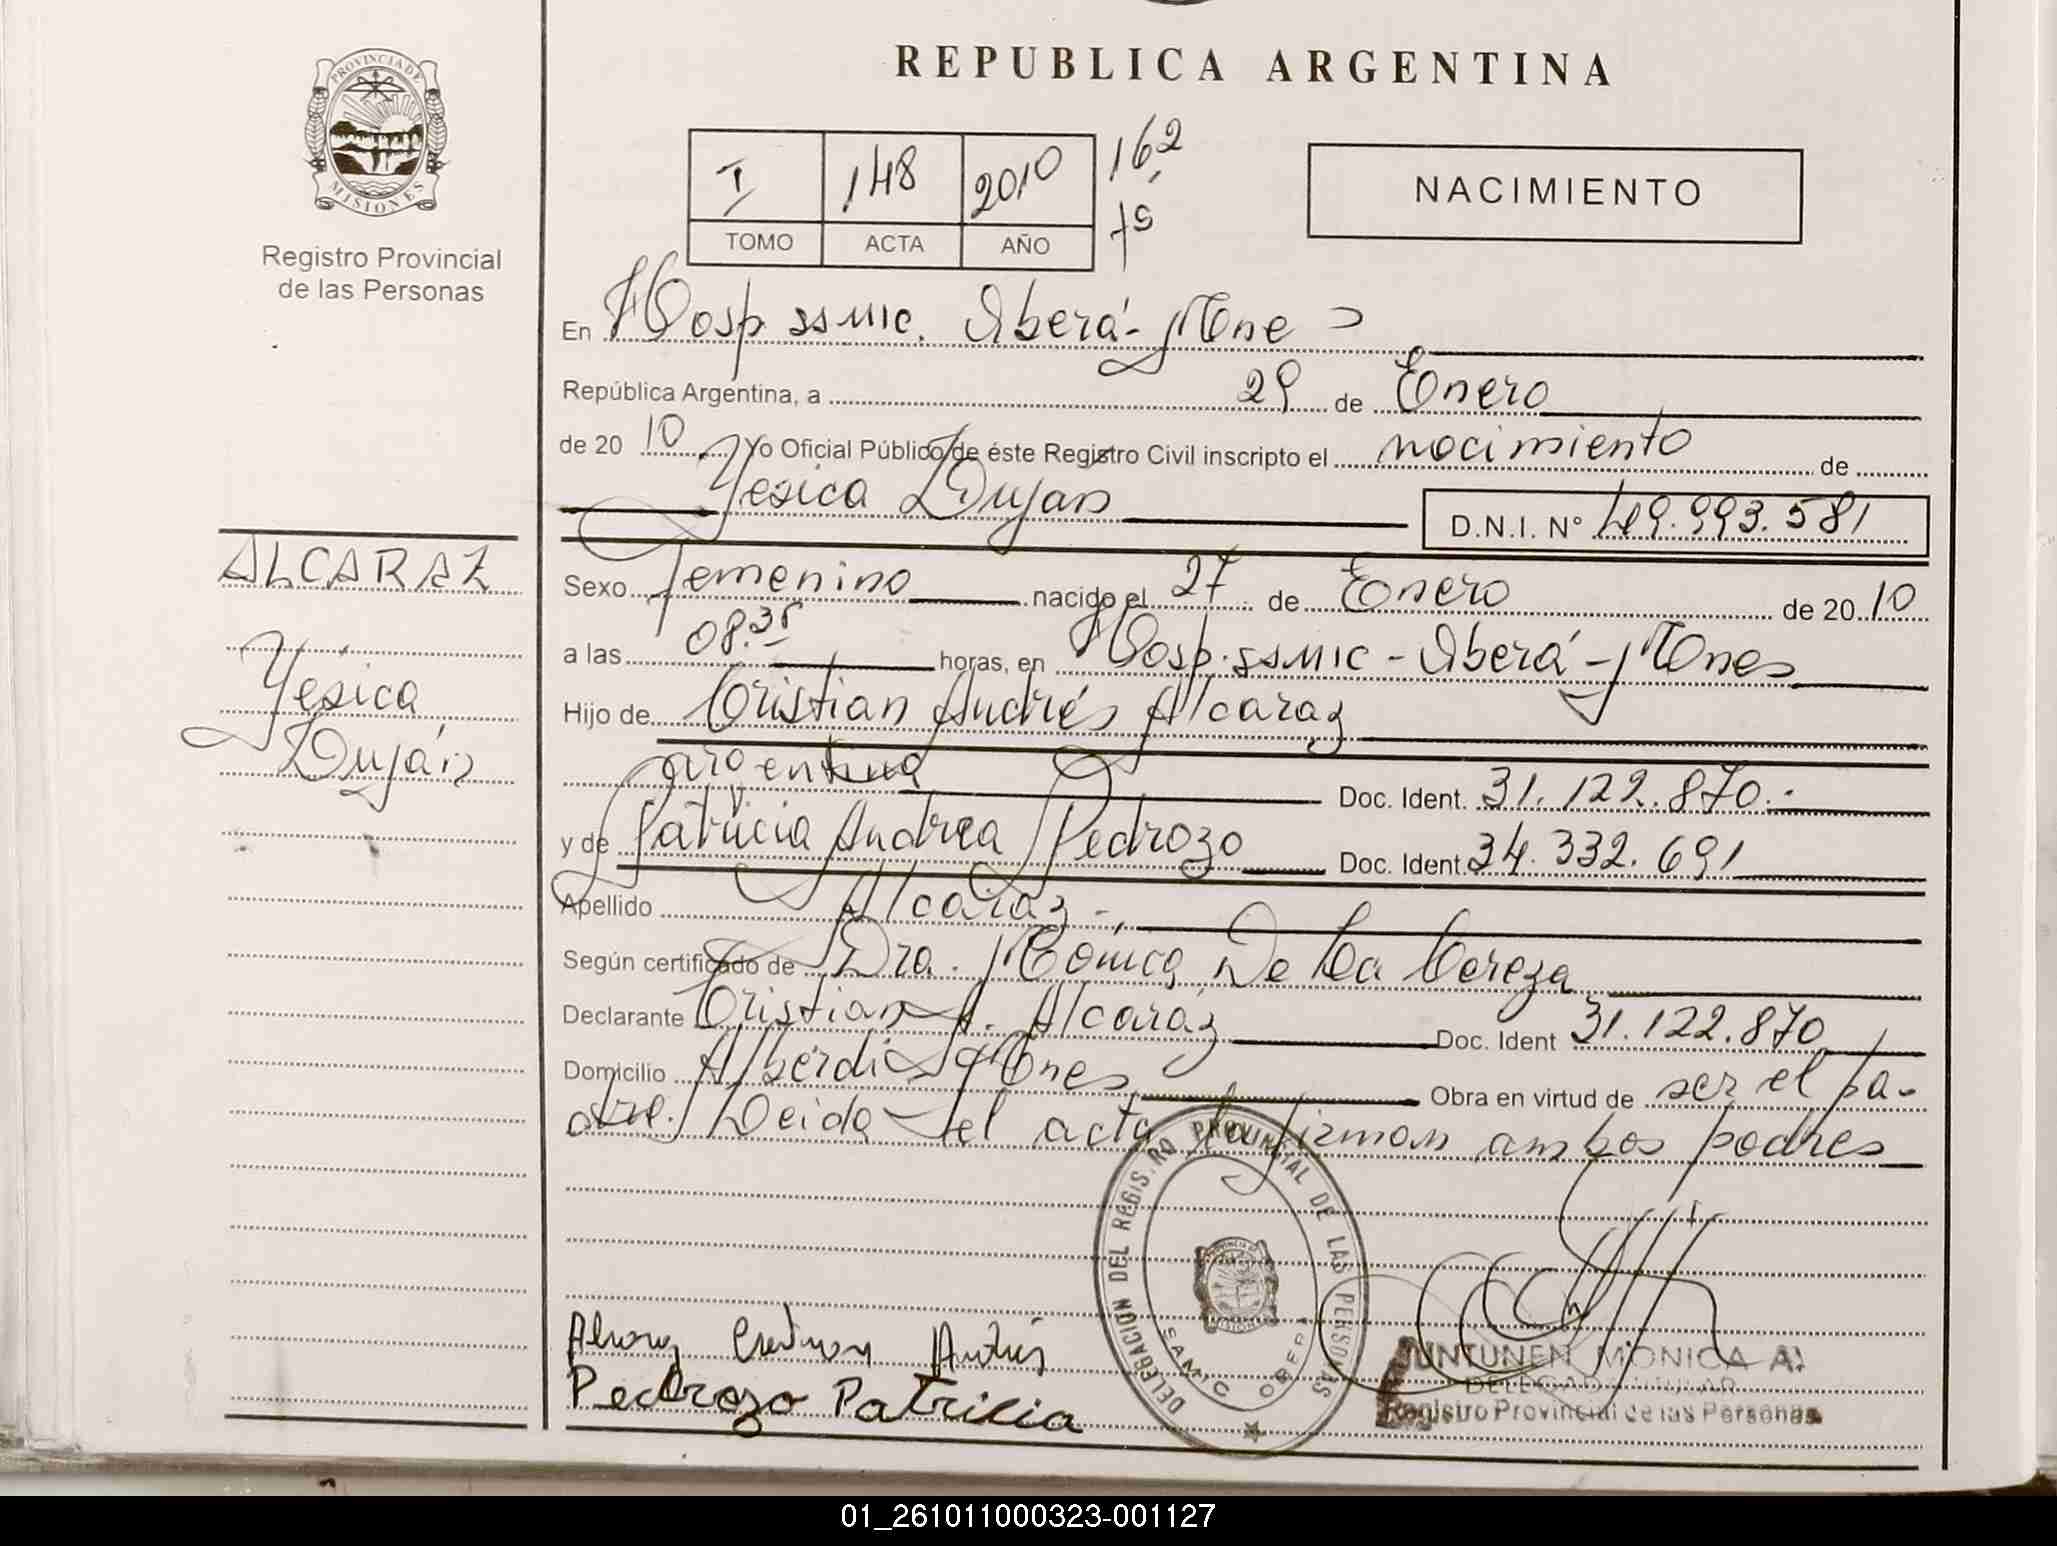 REPUBLICA ARGENTINA
PROVINCIA DE MISIONES
Registro Provincial
de las Personas
I 148 2010 162
TOMO ACTA AÑO
NACIMIENTO
En Hosp. SSMIC. Oberá - Mnes
República Argentina, a 29 de Enero
de 2010 Yo Oficial Público de éste Registro Civil inscripto el nacimiento de
Yesica Luján D.N.I. Nº 49.993.581
ALCARAZ
Yésica
Luján
Sexo femenino nacido el 27 de Enero de 2010
a las 08.35 horas, en Hosp. SSMIC - Oberá - Mnes
Hijo de Cristian Andrés Alcaraz
argentina Doc. Ident. 31.122.870.-
y de Patricia Andrea Pedrozo Doc. Ident. 34.332.691
Apellido Alcaraz.-
Según certificado de Dra. Mónica De La
Declarante Cristian A. Alcaraz Doc. Ident 31.122.870
Domicilio Alberdi - Mnes Obra en virtud de ser el pa-
dre. Leida el acta la firman ambos padres
Pedrozo Patricia
DELEGACION DEL REGISTRO PROVINCIAL DE LAS PERSONAS
SAMIC OBERA
JUNTUNEN MONICA A.
DELEGADA TITULAR
Registro Provincial de las Personas
01_261011000323-001127